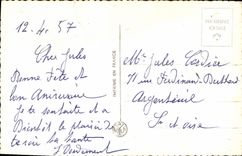 12.4.57
Cher Jules
Bonne Fête et
bon Anniversaire
Je te souhaite et a
Bientôt le plaisir de
te voir
Mr Jules
11 rue Ferdinand Berthoud
Argenteuil
S et oise
IMPRIMÉ EN FRANCE